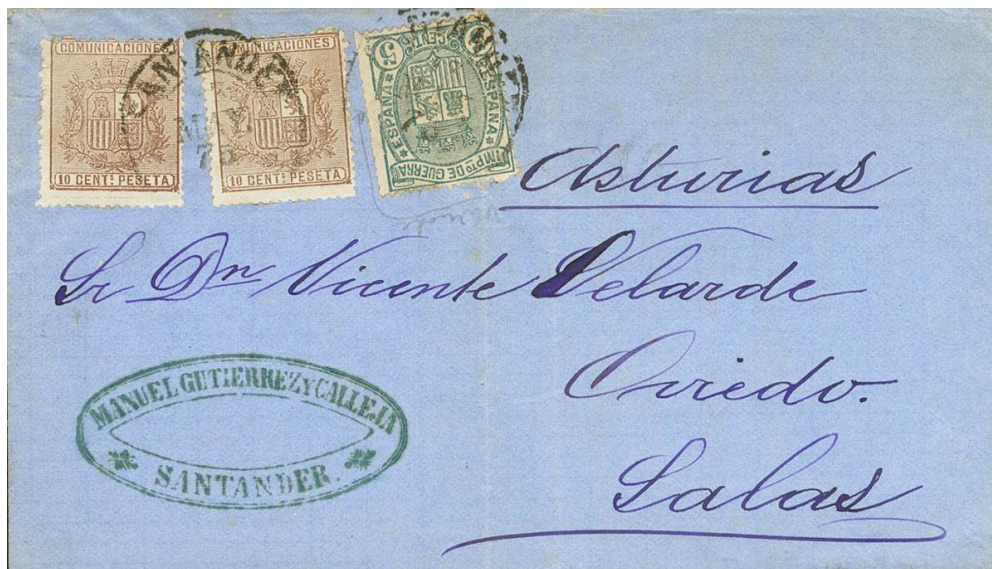 COMUNICACIONES
10 CENT.s PESETA
COMUNICACIONES
10 CENT.s PESETA
5 CENT.
ESPAÑA
ESPAÑA
IMP.TO DE GUERRA
SANTANDER
Asturias
Sr Dn Vicente Velarde
Oviedo.
Salas
MANUEL GUTIERREZ Y CALLEJA
SANTANDER.